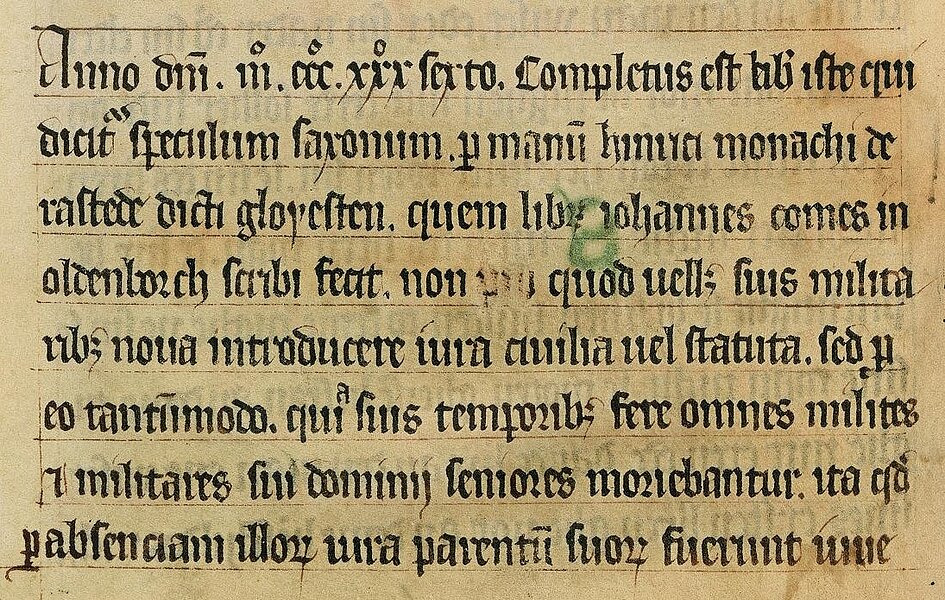 Anno dm̄. mͦ. cccͦ. xxxͦ sexto. Completus est lib̄ iste qui
dicit᷑ speculum saxonum. ꝑ manū hinrici monachi de
rastede dicti gloyesten. quem libꝝ iohannes comes in
oldenborch scribi fecit. non quod uellꝫ suis milita
ribꝫ noua introducere iura ciuilia uel statuta. sed ꝑ
eo tantūmodo. quiᵃ suis temporibꝫ fere omnes milites
⁊ militares sui dominij seniores moriebantur. ita qd̄
ꝑ absenciam illoꝝ iura parentū suoꝝ fuerunt iuue